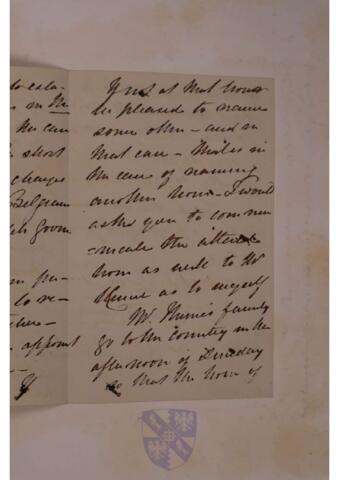 to esta-
in
the case
short
charges
Belgrave
Groom
to re-
there -
appoint
If
If not at that hour
be pleased to name
some other - and in
that case - that is in
the case of naming
another hour - I would
ask you to commu
-nicate the altered
hour as well to Mr
as to myself
Mr. family
go to the Country in the
afternoon of Tuesday
so that the hour of